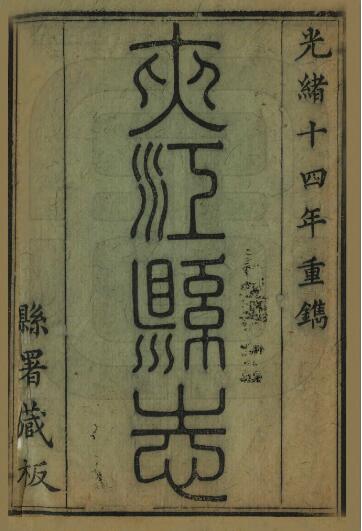 光緒十四年重鐫
夾江縣志
縣署藏板